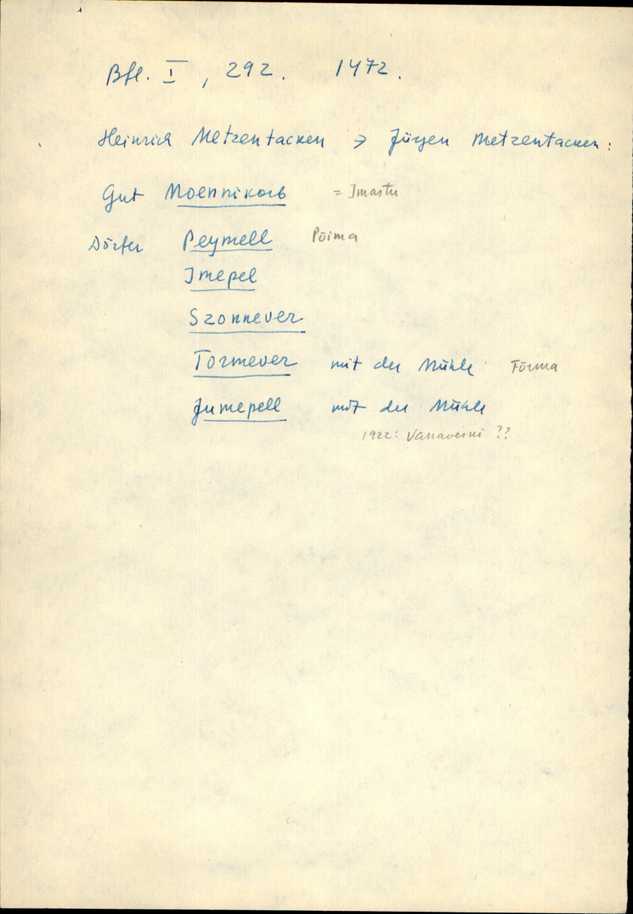 Bfl. I, 292. 1472.
Heinrich Metzentacken → Jürgen Metzentacken:
Gut Moennikorb = Imastu
Dörfer Peymell Põima
Imepel
Szonnever
Tormever mit der Mühle Tõrma
Jumepell mit der Mühle
1922: Vanaveski ??